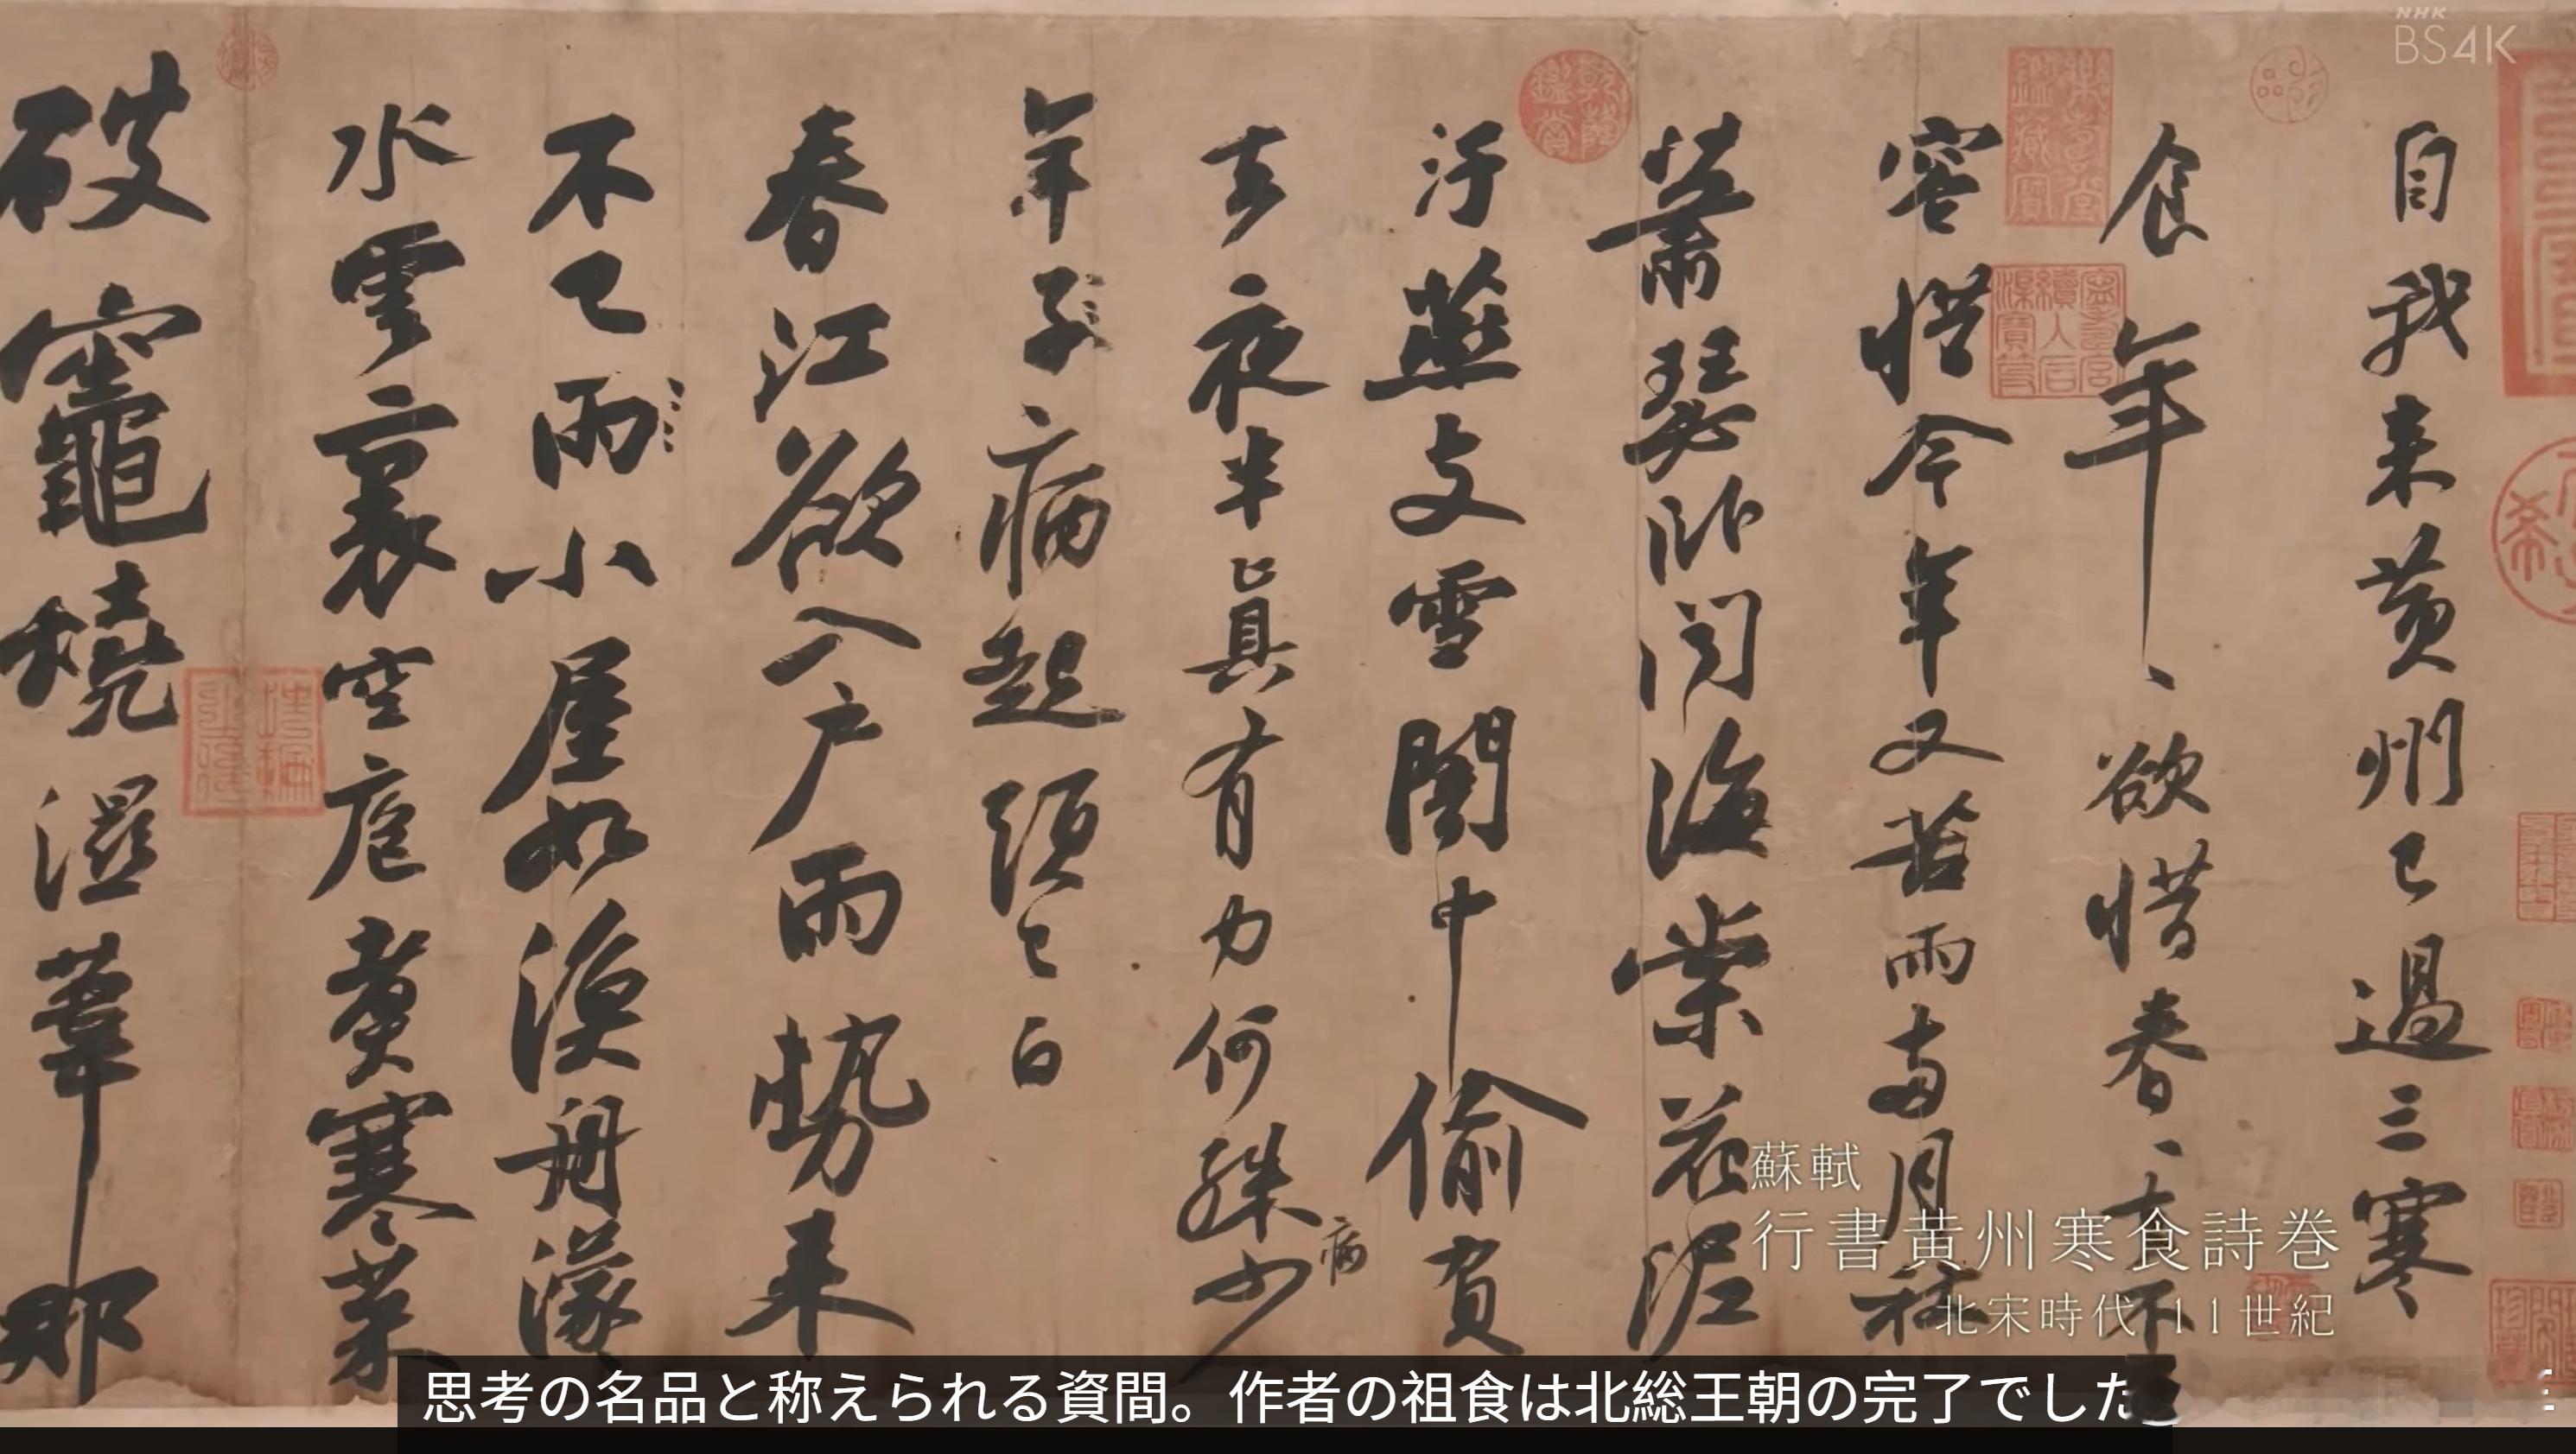 自我来黄州已過三寒
食年、欲惜春、去不
容惜今年又苦雨両月秋
蕭瑟卧聞海棠花泥
汙燕支雪闇中偷負
去夜半真有力何殊少
病
年子病起頭已白
春江欲入户雨勢来
不已雨小屋如漁舟濛
水雲裏空庖煑寒菜
破竈燒濕葦那
NHK
BS4K
蘇軾
行書黄州寒食詩巻
北宋時代 11世紀
思考の名品と称えられる資間。作者の祖食は北総王朝の完了でした